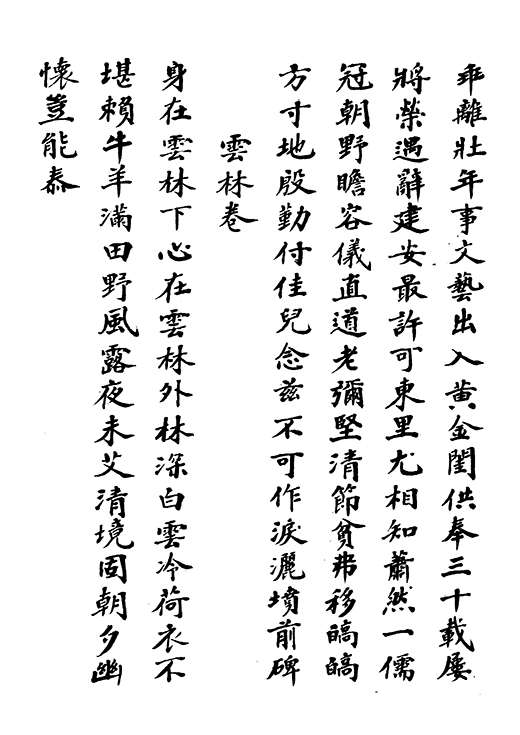 乖離壯年事文藝出入黃金閨供奉三十載屢
將榮遇辭建安最許可東里尤相知蕭然一儒
冠朝野瞻容儀直道老彌堅清節貧弗移皜皜
方寸地殷勤付佳兒念茲不可作淚灑墳前碑
雲林卷
身在雲林下心在雲林外林深白雲冷荷衣不
堪賴牛羊滿田野風露夜未艾清境固朝夕幽
懷豈能泰